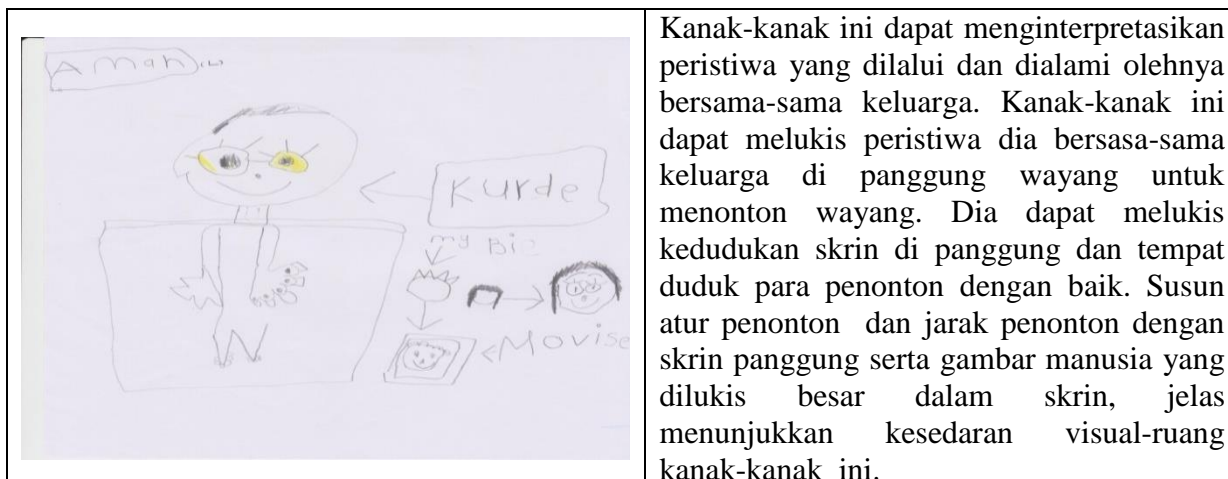 Aman
Kurde
my Bie
Movise
Kanak-kanak ini dapat menginterpretasikan
peristiwa yang dilalui dan dialami olehnya
bersama-sama keluarga. Kanak-kanak ini
dapat melukis peristiwa dia bersasa-sama
keluarga di panggung wayang untuk
menonton wayang. Dia dapat melukis
kedudukan skrin di panggung dan tempat
duduk para penonton dengan baik. Susun
atur penonton dan jarak penonton dengan
skrin panggung serta gambar manusia yang
dilukis besar dalam skrin, jelas
menunjukkan kesedaran visual-ruang
kanak-kanak ini.